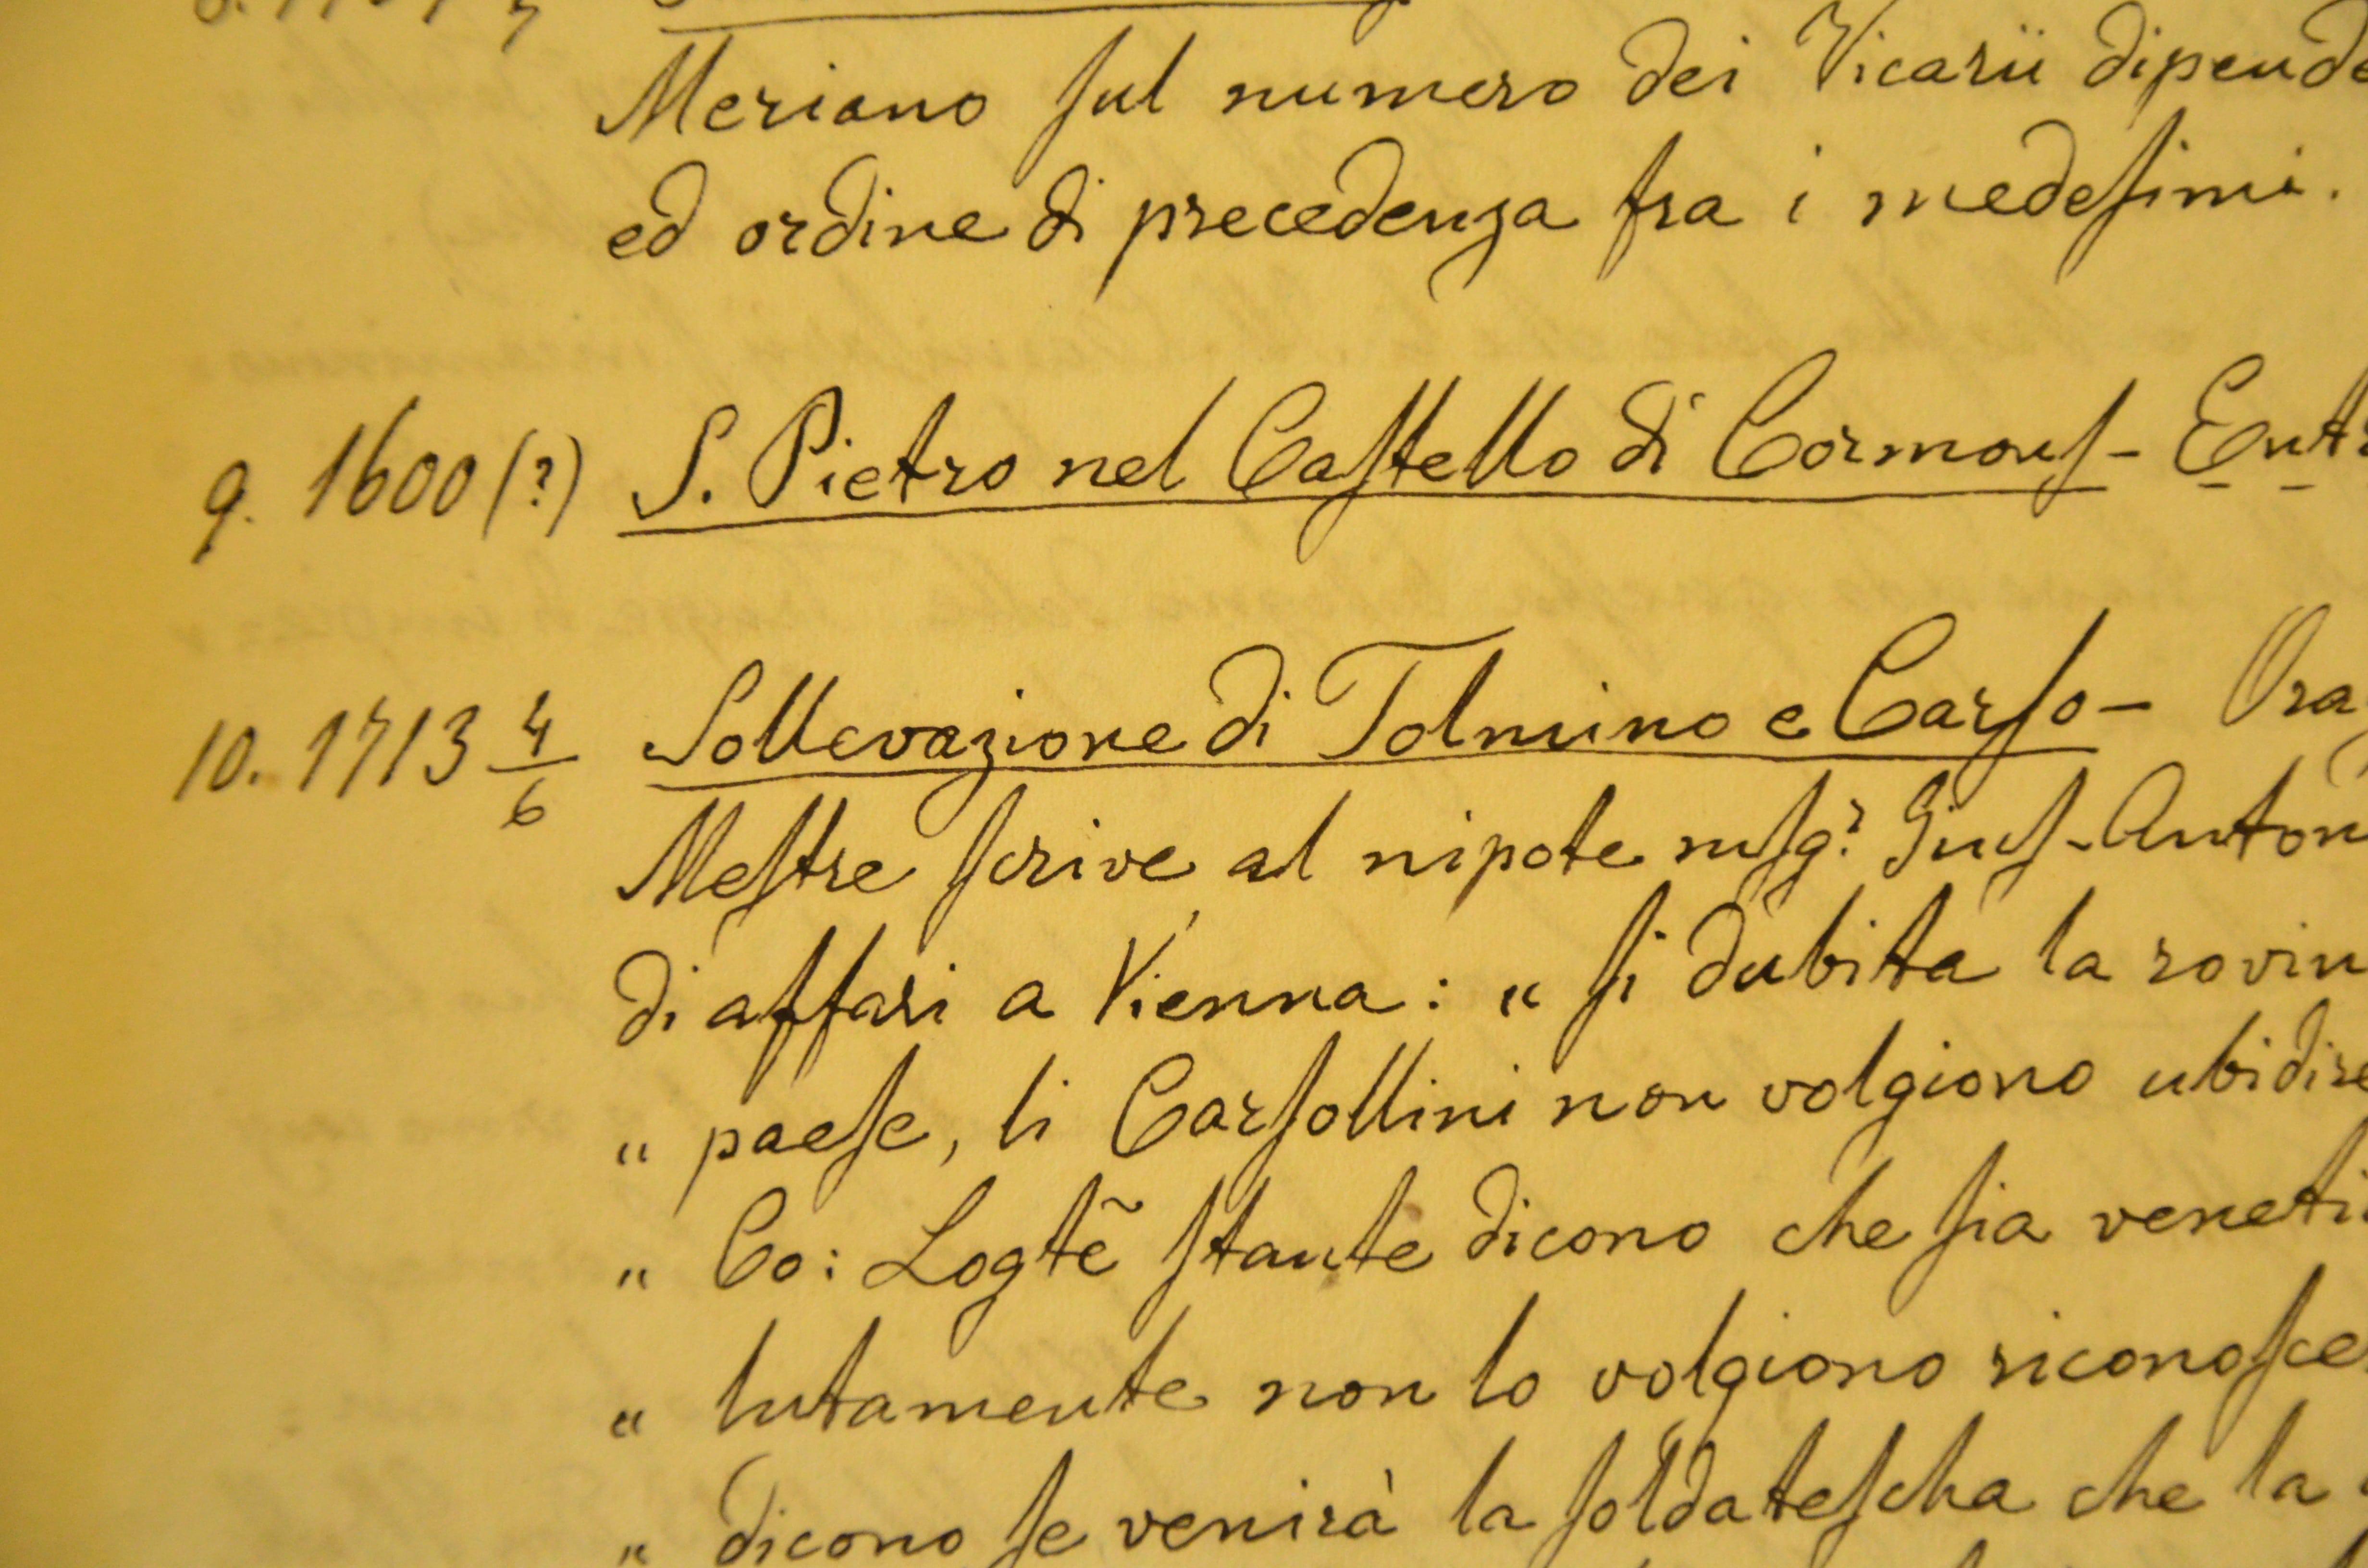 Meriano sul numero dei Vicarii dipende
ed ordine di precedenza fra i medesimi.
9. 1600 (?) S. Pietro nel Castello di Cormons - Ent
10. 1713 4/6 Sollevazione di Tolmino e Carso - Ora
Mestre scrive al nipote msgr. Gius. Anton
di affari a Vienna : „ si dubita la rovin
„ paese, li Carsollini non volgiono ubidire
„ Co: Logtẽ stante dicono che sia veneti
„ lutamente non lo volgiono riconosce
„ dicono se venirà la soldatescha che la